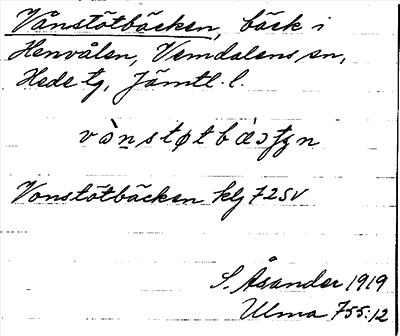 Vånstötbäcken, bäck i
Henvålen, Vemdalens sn,
Hede tg, Jämtl. l.
Vonstötbäcken klj 72SV
S. Åsander 1919
Ulma 755:12